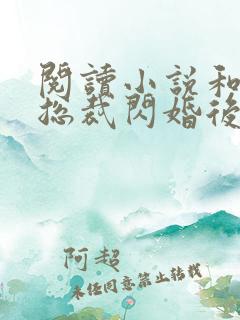 閱讀小說和
總裁閃婚後
阿超
未經同意禁止轉載